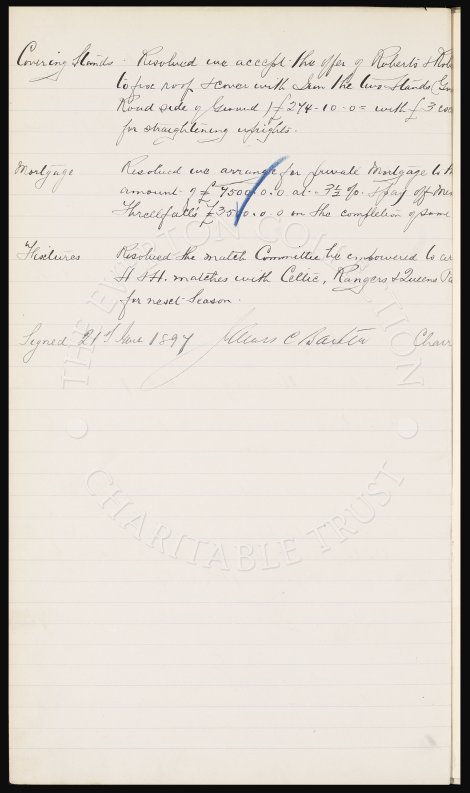 Covering Stands. Resolved we accept the offer of Roberts &
to fix roof & cover with Iron the two Stands
Road side of Ground) £274-10-0 = with £3
for straightening uprights.
Mortgage Resolved we arrange for private Mortgage to
amount of £7500.0.0 at 3½ % & pay off
Threlfalls £3500.0.0 on the completion of same
Fixtures Resolved the match Committee be empowered to
H & H. matches with Celtic, Rangers & Queens
for next Season.
Signed 21st 1897 James C Baxter Chair
THE EVERTON COLLECTION
CHARITABLE TRUST